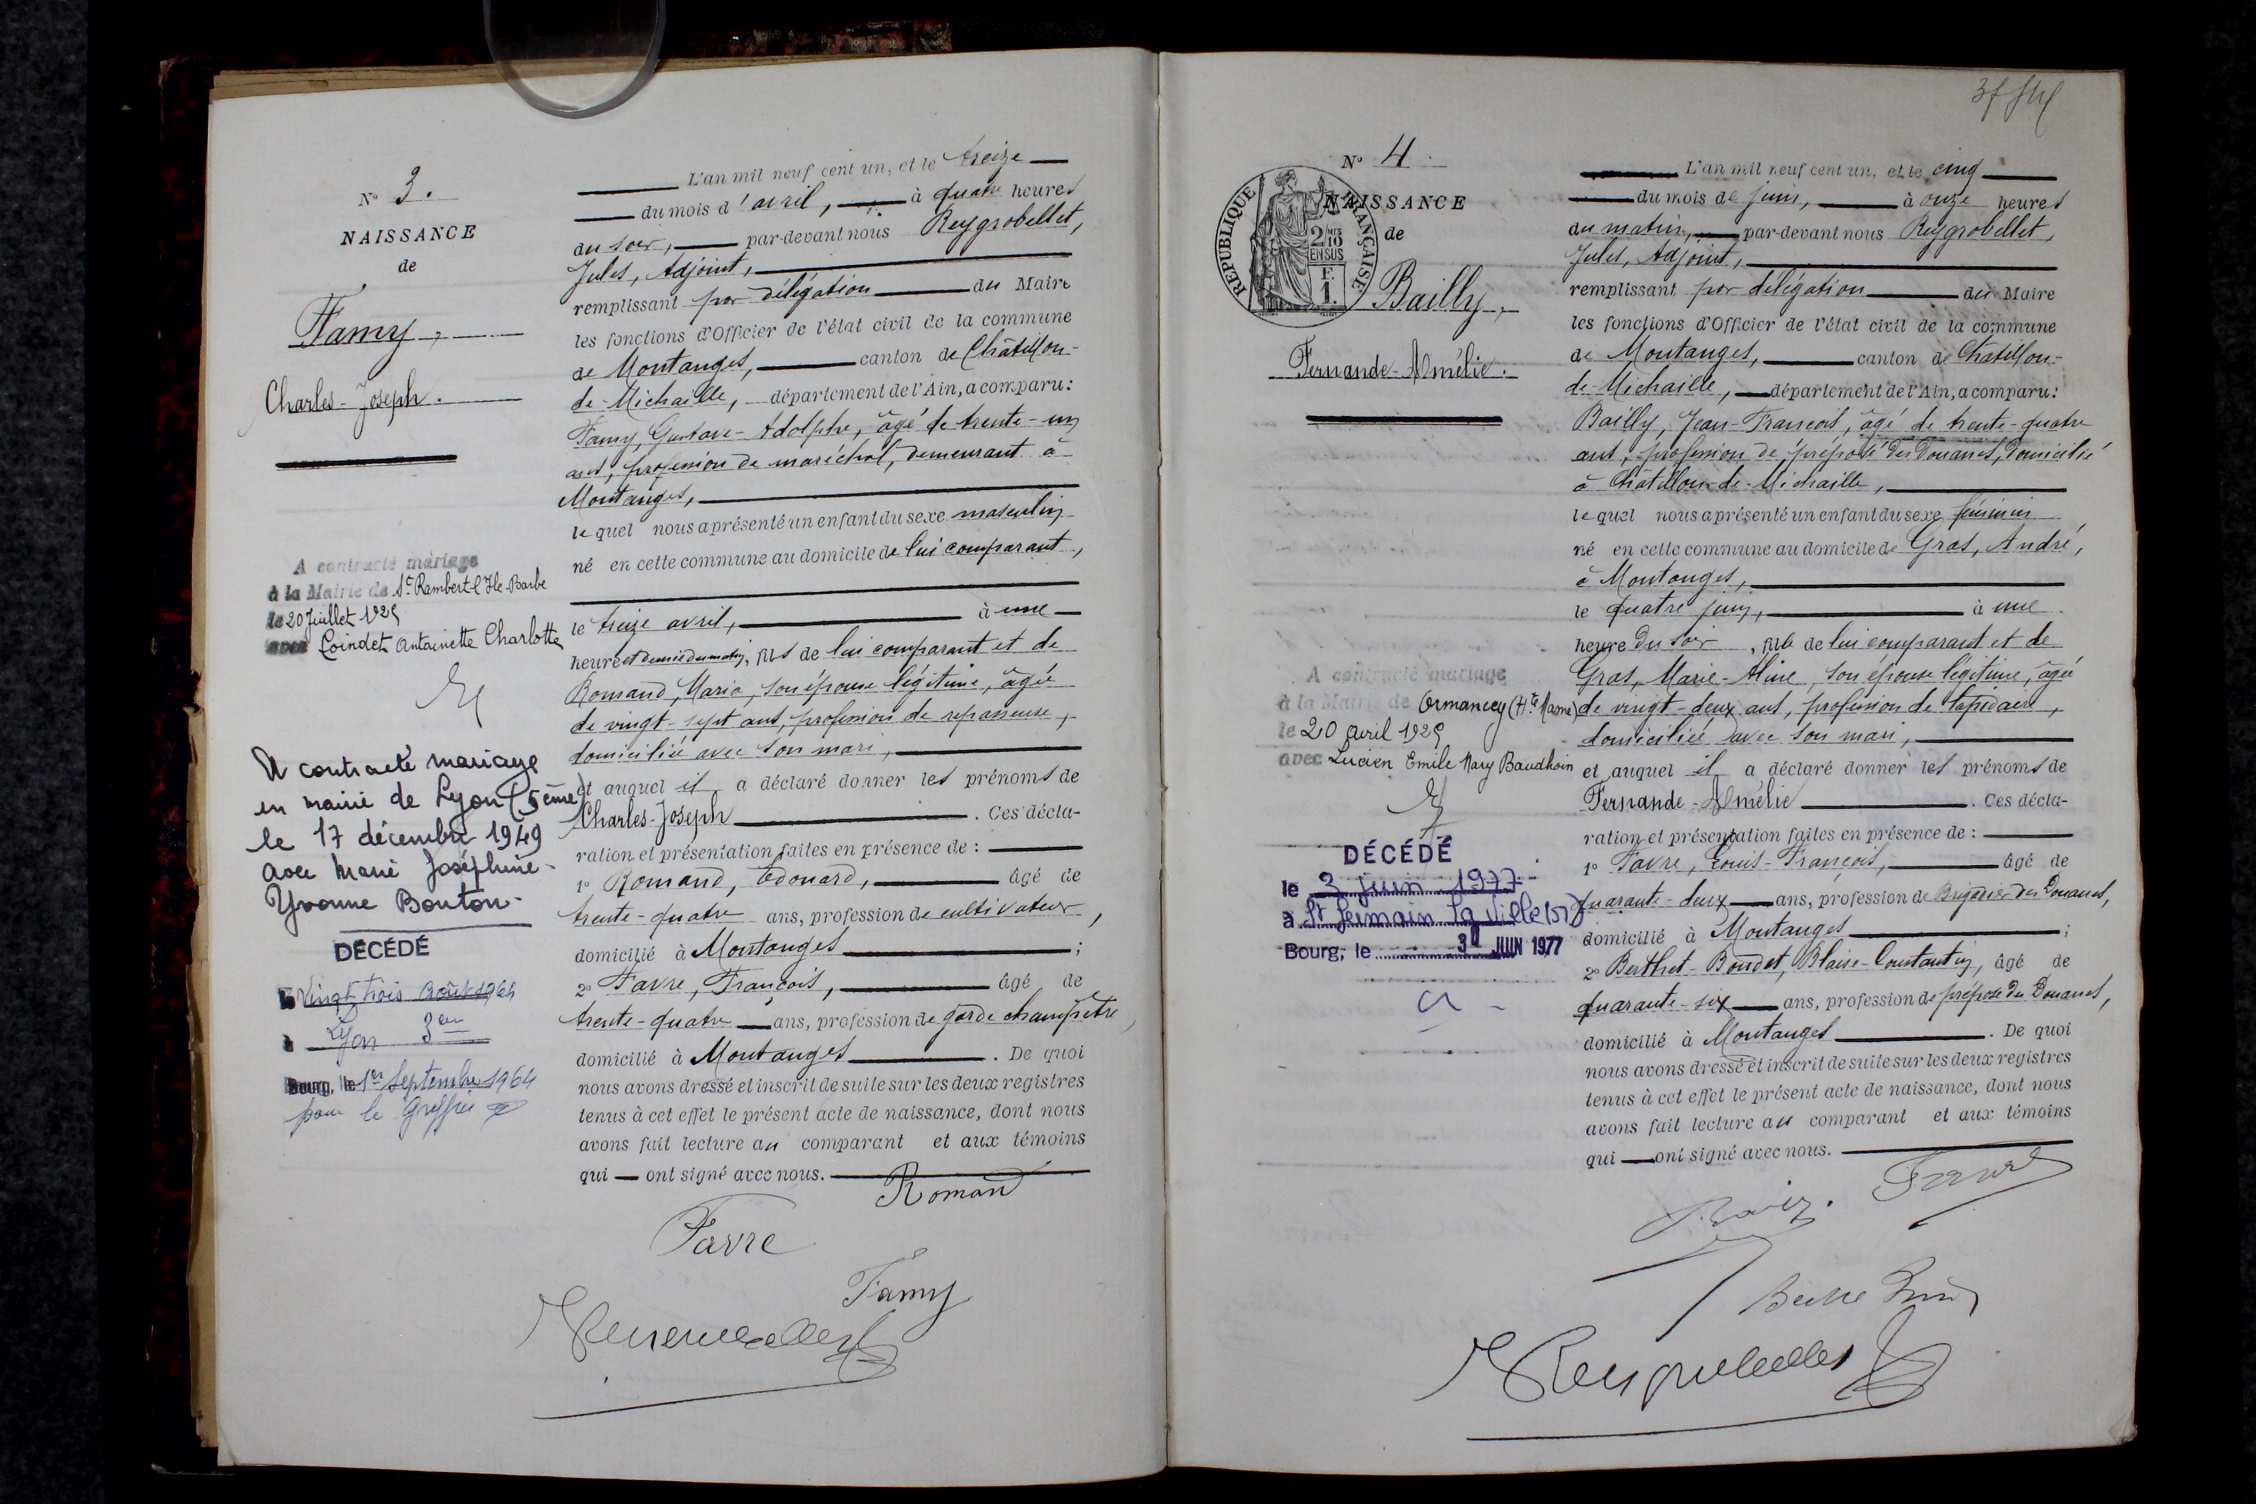 N° 3.
NAISSANCE
de
Famy,
Charles-Joseph.
A contracté mariage
à la Mairie de St Rambert-l'Ile-Barbe
le 20 Juillet 1925
avec Loindet Antoinette Charlotte
A contracté mariage
en mairie de Lyon (5ème)
le 17 décembre 1949
avec Marie Joséphine-
Yvonne Bonton-
DÉCÉDÉ
le Vingt trois Août 1964
à Lyon 3em
Bourg, le 1er Septembre 1964
pour le Greffier
L'an mil neuf cent un, et le treize
du mois d'avril, à quatre heures
du soir, par-devant nous Reygrobellet,
Jules, Adjoint,
remplissant par délégation du Maire
les fonctions d'Officier de l'état civil de la commune
de Montanges, canton de Châtillon-
de-Michaille, département de l'Ain, a comparu:
Famy, Gustave-Adolphe, âgé de trente-un
ans, profession de maréchal, demeurant à
Montanges,
lequel nous a présenté un enfant du sexe masculin
né en cette commune au domicile de lui comparant,
le treize avril, à une
heure et demie du matin, fils de lui comparant et de
Romand, Maria, son épouse légitime, âgée
de vingt-sept ans, profession de repasseuse,
domiciliée avec son mari,
et auquel il a déclaré donner les prénoms de
Charles-Joseph. Ces décla-
ration et présentation faites en présence de :
1° Romand, Edouard, âgé de
trente-quatre ans, profession de cultivateur,
domicilié à Montanges;
2° Favre, François, âgé de
trente-quatre ans, profession de garde champêtre,
domicilié à Montanges. De quoi
nous avons dressé et inscrit de suite sur les deux registres
tenus à cet effet le présent acte de naissance, dont nous
avons fait lecture au comparant et aux témoins
qui ont signé avec nous.
Romand
Favre
Famy
N° 4.
NAISSANCE
de
RÉPUBLIQUE FRANÇAISE
2/10
EN SUS
F.
1.
Bailly,
Fernande-Amélie.
A contracté mariage
à la Mairie de Ormancey (Hte Marne)
le 20 avril 1925
avec Lucien Emile Mary Baudhoin
DÉCÉDÉ
le 3 juin 1977
à St Germain la Ville (51)
Bourg, le JUIN 1977
L'an mil neuf cent un, et le cinq
du mois de juin, à onze heures
du matin, par-devant nous Reygrobellet,
Jules, Adjoint,
remplissant par délégation du Maire
les fonctions d'Officier de l'état civil de la commune
de Montanges, canton de Chatillon-
de-Michaille, département de l'Ain, a comparu:
Bailly, Jean-François, âgé de trente-quatre
ans, profession de préposé des Douanes, domicilié
à Châtillon-de-Michaille,
lequel nous a présenté un enfant du sexe féminin
né en cette commune au domicile de Gras, André,
à Montanges,
le quatre juin, à une
heure du soir, fille de lui comparant et de
Gras, Marie-Aline, son épouse légitime, âgée
de vingt-deux ans, profession de lapidaire,
domiciliée avec son mari,
et auquel il a déclaré donner les prénoms de
Fernande-Amélie. Ces décla-
ration et présentation faites en présence de :
1° Favre, Louis-François, âgé de
quarante-deux ans, profession de Brigadier des Douanes,
domicilié à Montanges;
2° Berthet-Bondet, Blaise-Constantin, âgé de
quarante-six ans, profession de préposé des Douanes,
domicilié à Montanges. De quoi
nous avons dressé et inscrit de suite sur les deux registres
tenus à cet effet le présent acte de naissance, dont nous
avons fait lecture au comparant et aux témoins
qui ont signé avec nous.
Favre